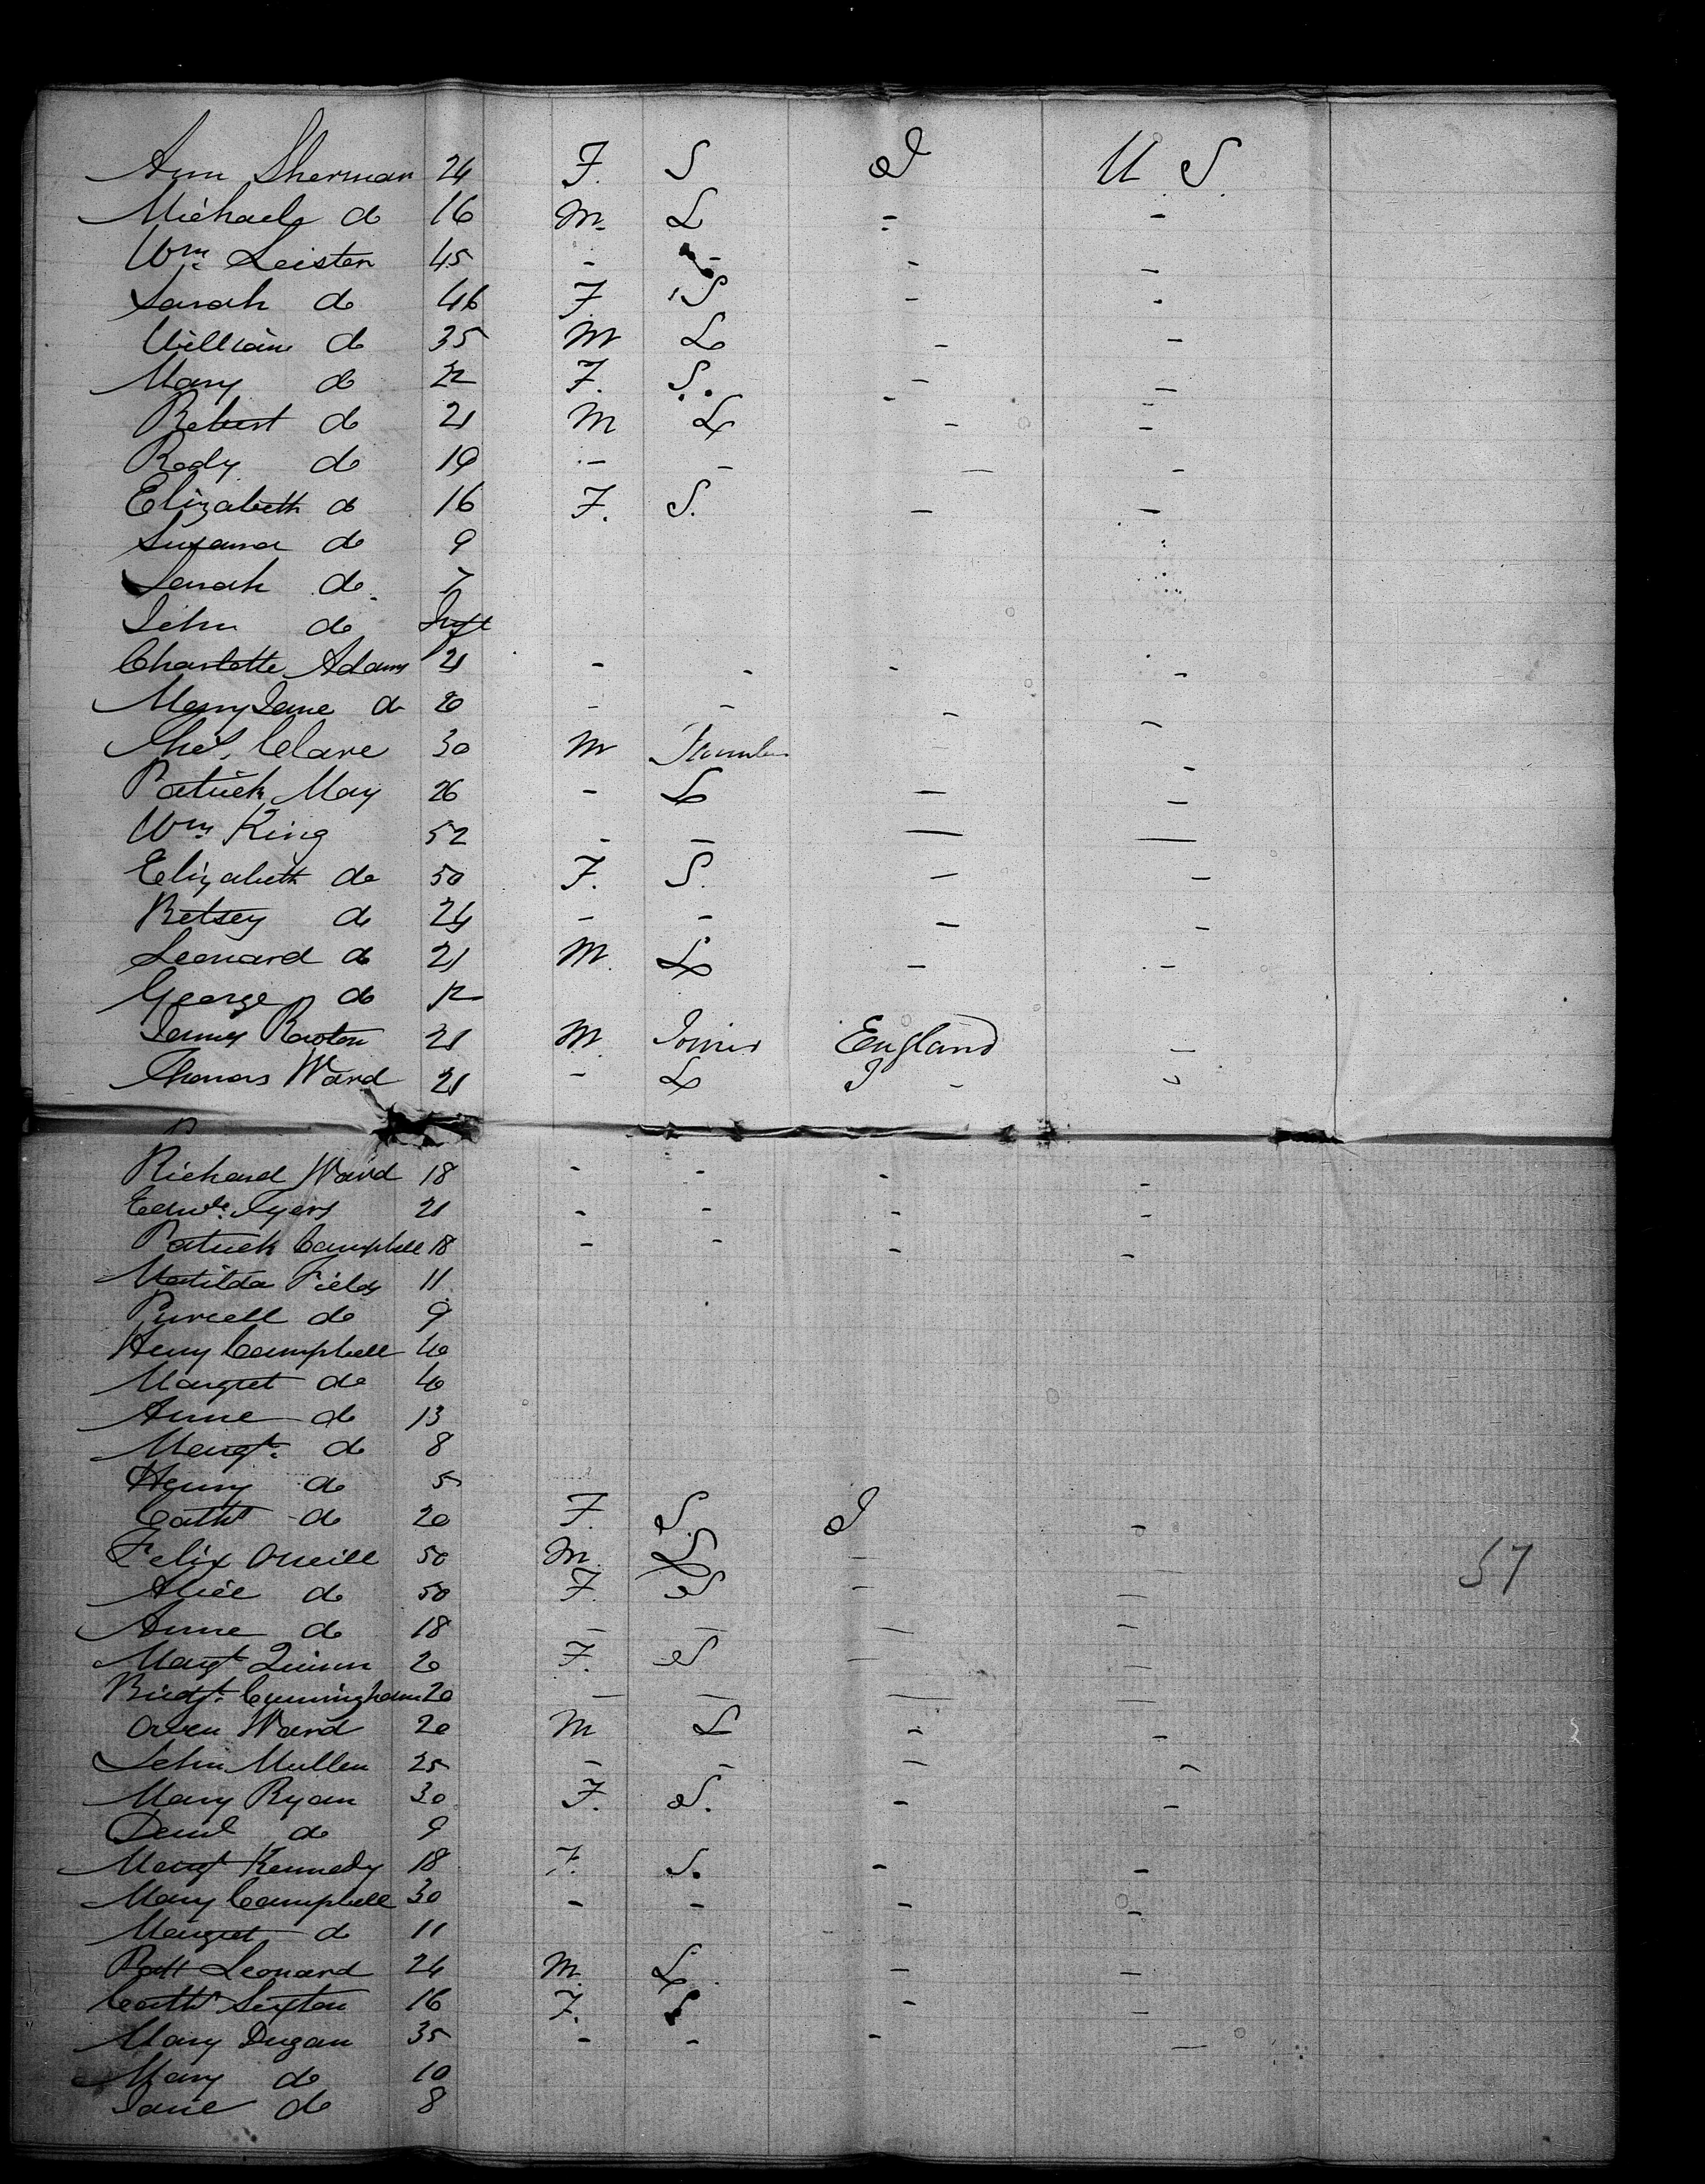 Ann Sherman 24 F. S I U. S.
Michael do 16 M. L - -
Wm. Leister 45 - - - -
Sarah do 46 F. S - -
William do 35 M L - -
Mary do 22 F. S. - -
Robert do 21 M L - -
Rody do 19 - - - -
Elizabeth do 16 F. S. - -
Susana do 9
Sarah do 7
John do Inft
Charlotte Adams 21 - - - -
Mary Jane do 20 - - - -
Clare 30 M - -
Patrick May 26 - L - -
Wm King 52 - - - -
Elizabeth do 50 F. S. - -
Betsey do 24 - - - -
Leonard do 21 M. L - -
George do 12
James 21 M. Joiner England -
Thomas Ward 21 - L I - -
Richard Ward 18 - - - -
Edwd. Tyers 21 - - - -
Patrick Campbell 18 - - - -
Matilda Fields 11
Purcell do 9
Henry Campbell 40
Margret do 40
Anne do 13
Margt. do 8
Henry do 5
Cathe do 20 F. S. I -
Felix Oneill 50 M. L -
Alice do 50 F. S - -
Anne do 18 - - - -
Margt Quinn 20 F. S - -
Bridgt. Cunningham 20 - - - -
Owen Ward 20 M L - -
John Mullen 25 - - - -
Mary Ryan 30 F. S. - -
Danl do 9
Margt Kennedy 18 F. S. - -
Mary Campbell 30 - - - -
Margret do 11
Patt Leonard 24 M. L - -
Cathe Sexton 16 F. S - -
Mary Dugan 35 - - - -
Mary do 10
Jane do 8
57